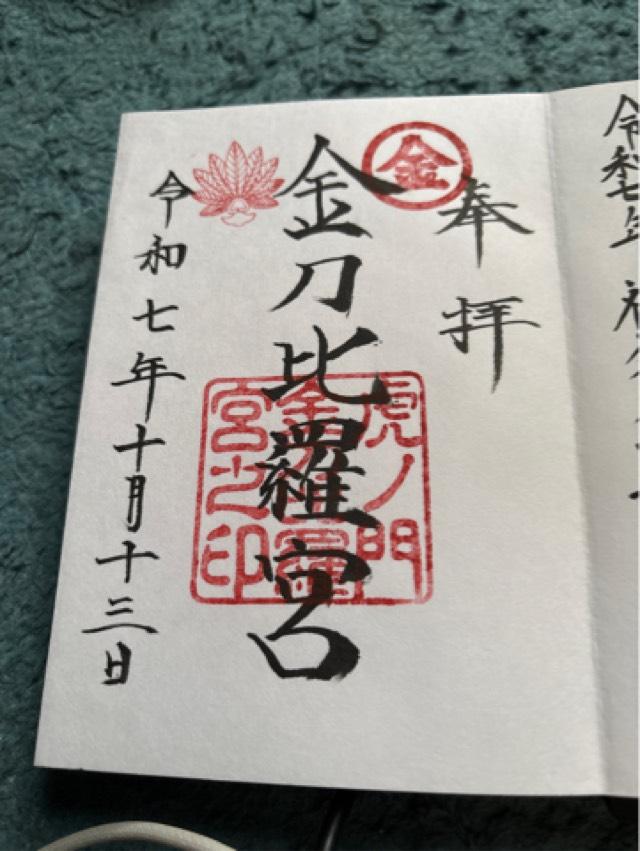 奉拝
金
金刀比羅宮
虎ノ門
金刀比羅
宮之印
令和七年十月十三日
令和七年